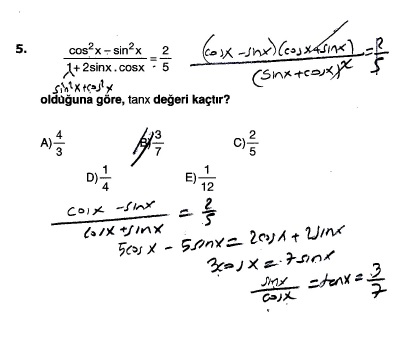 5. cos²x – sin²x / 1 + 2sinx . cosx = 2/5
(cosx – sinx)(cosx + sinx) / (sinx + cosx)² = 2/5
sin²x + cos²x
olduğuna göre, tanx değeri kaçtır?
A) 4/3 B) 3/7 C) 2/5
D) 1/4 E) 1/12
cosx – sinx / cosx + sinx = 2/5
5cosx – 5sinx = 2cosx + 2sinx
3cosx = 7sinx
sinx / cosx = tanx = 3/7